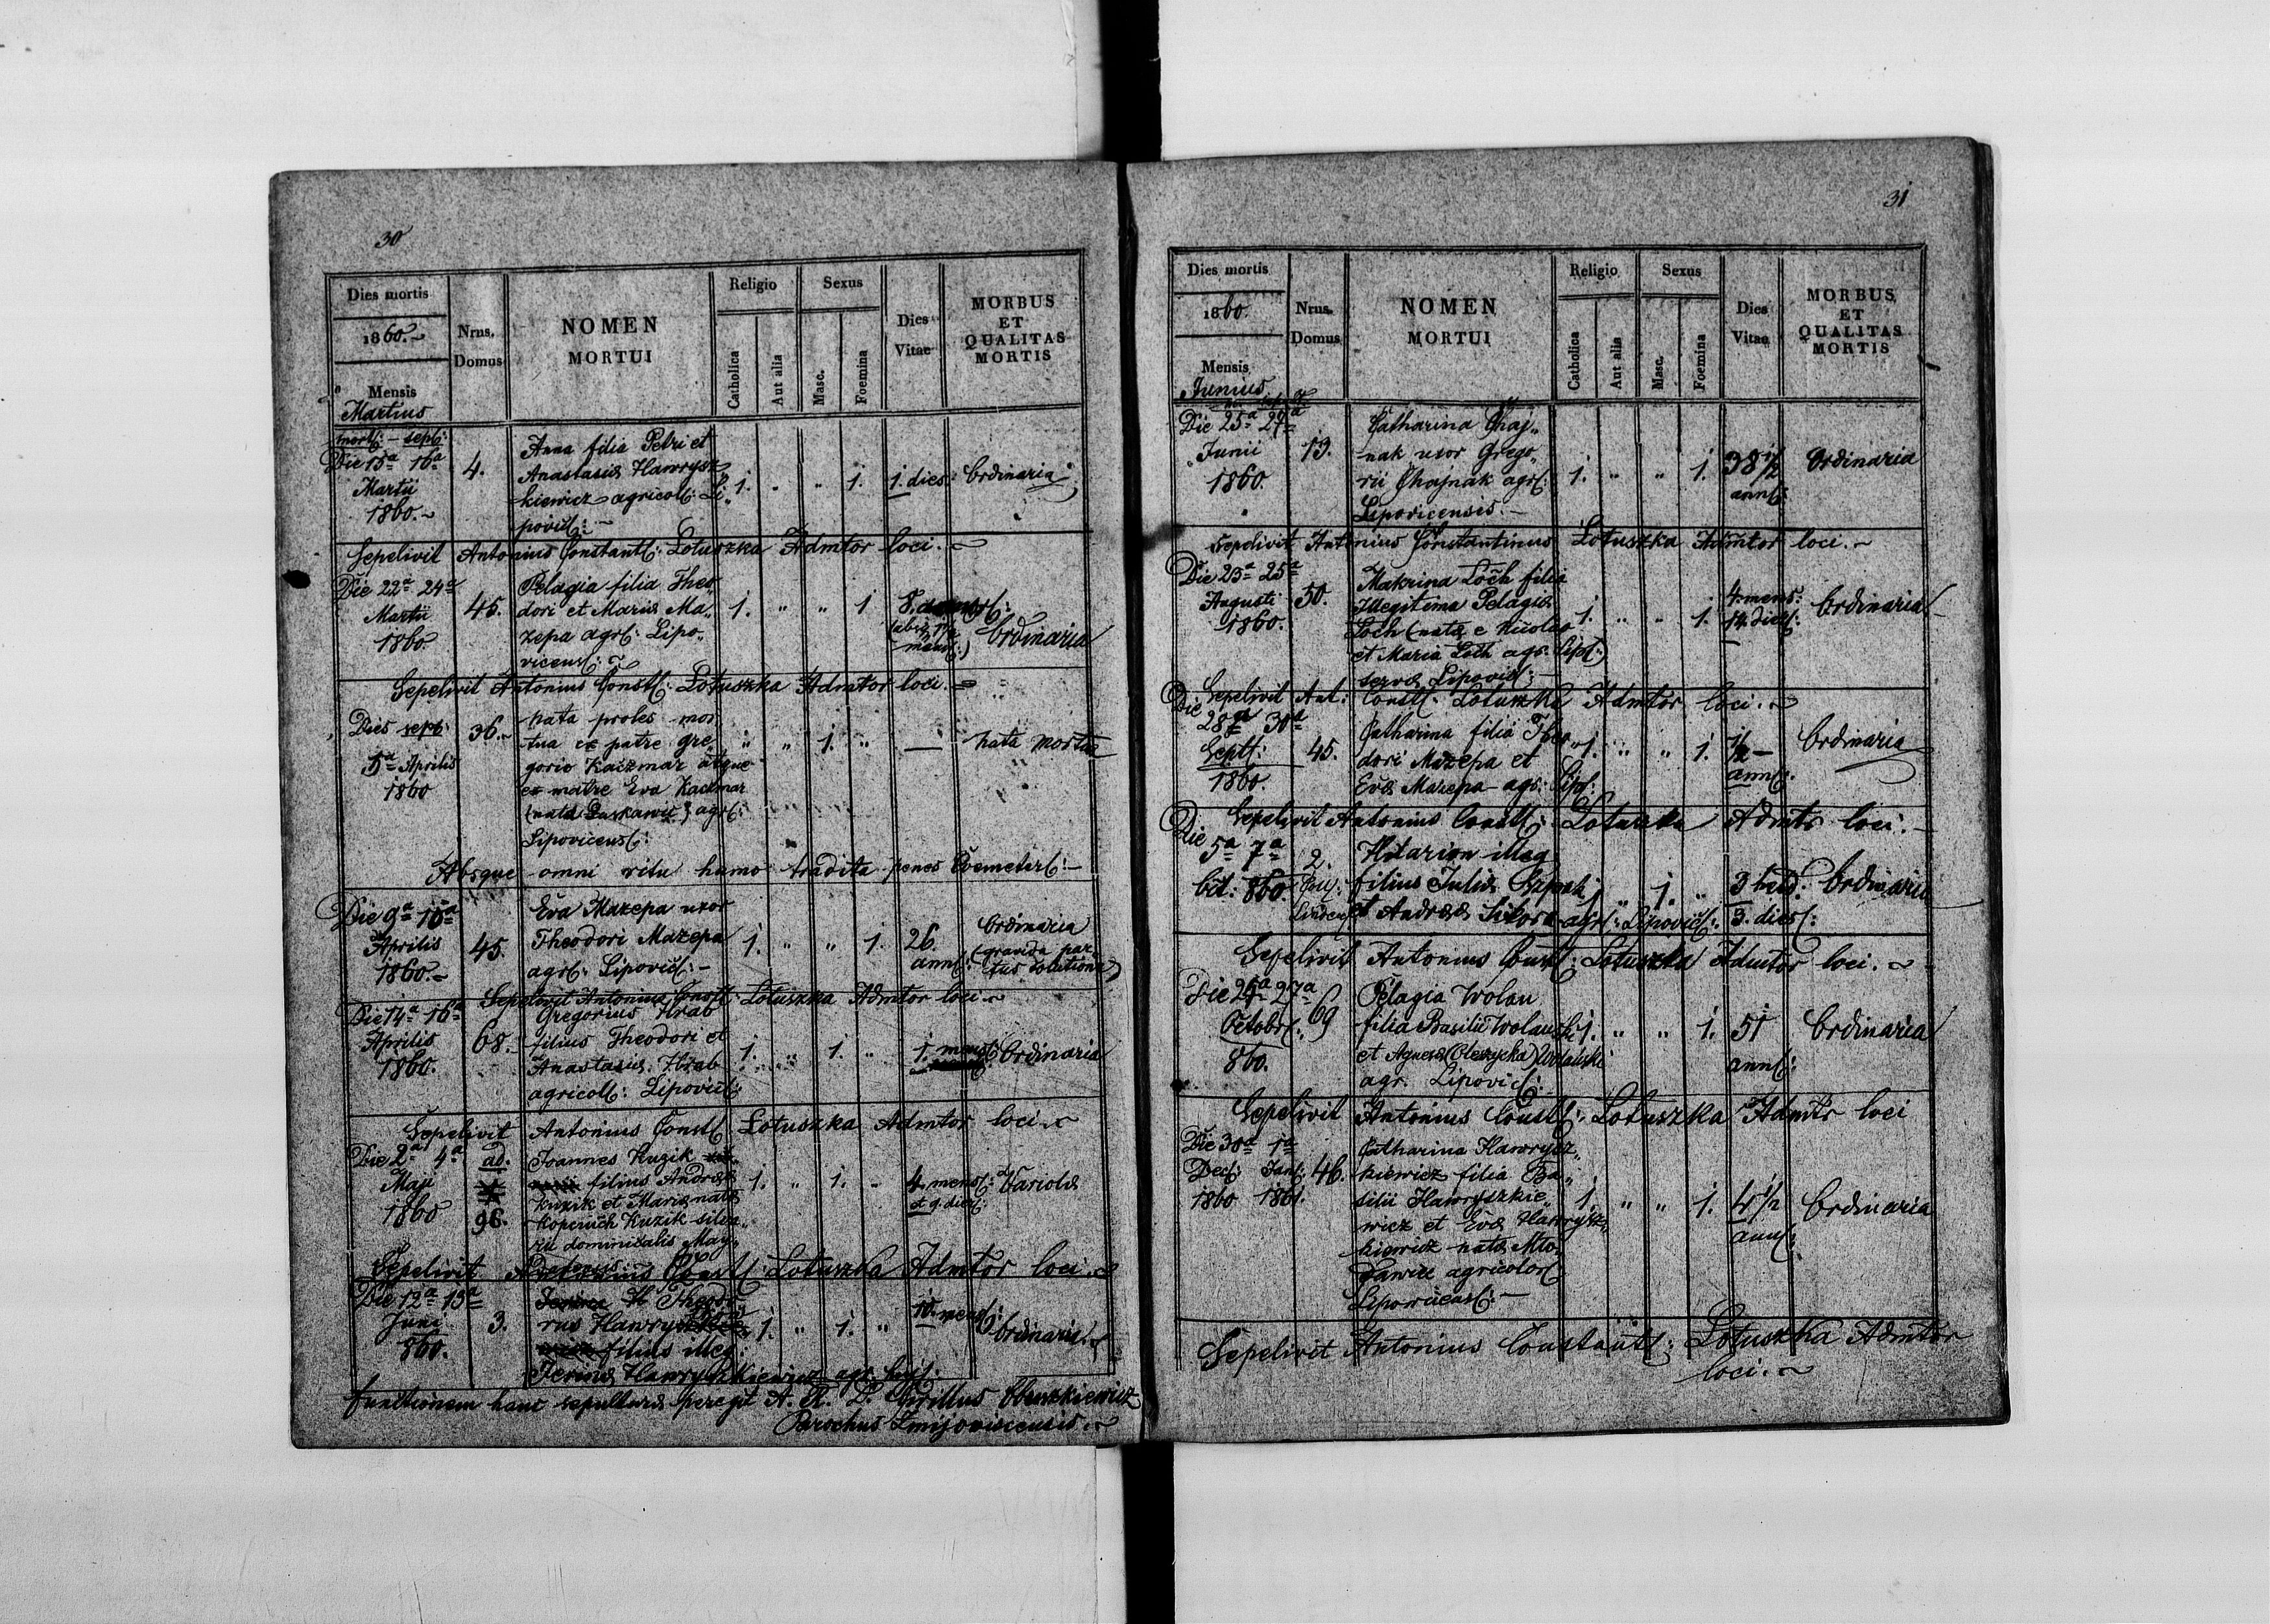 30
Dies mortis
1860.
Mensis
Martius
Nrus.
Domus
NOMEN
MORTUI
Religio
Catholica
Aut alia
Sexus
Masc.
Foemina
Dies
Vitae
MORBUS
ET
QUALITAS
MORTIS
mort: – sept:
Die 15a 16a
Martii
1860.
4.
Anna filia Petri et
Anastasiæ Hawrysz
kiewicz agricol: Li„
povic:
1. „ „ 1.
1. dies
Ordinaria
Sepelivit Antonius Constant: Lotuszka Admtor loci.
Die 22a 24a
Martii
1860.
45.
Pelagia filia Theo„
dori et Mariæ Ma„
zepa agr: Lipo„
vicens:
1. „ „ 1
8.
Ordinaria
Sepelivit Antonius Const: Lotuszka Admtor loci.
Dies sept:
5a Aprilis
1860
36.
nata proles mor„
tua ex patre Gre„
gorio Kaczmar atque
ex matre Eva Kaczmar
(nata ) agr:
Lipovicens:
„ „ 1. „
—
nata mortua
Absque omni ritu humo tradita penes Coemeter: –
Die 9a 10a
Aprilis
1860.
45.
Eva Mazepa uxor
Theodori Mazepa
agr: Lipovic: –
1. „ „ 1.
26.
ann:
Ordinaria
(gravida par„
tus solutione)
Sepelivit Antonius Const: Lotuszka Admtor loci
Die 14a 16a
Aprilis
1860.
68.
Gregorius Hrab
filius Theodori et
Anastasiæ Hrab
agricol: Lipovic:
1. „ 1. „
1. mens:
Ordinaria
Sepelivit Antonius Const: Lotuszka Admtor loci.
Die 2a 4a
Maji
1860
ad.
96.
Joannes Kuzik
filius Andreæ
Kuzik et Mariæ natæ
Kuzik
dominicalis May„
1. „ 1. „
4 mens:
et 9. dies:
Variolæ
Sepelivit Antonius Const: Lotuszka Admtor loci.
Die 12a 13a
Juni
860.
3.
Theodo„
rus Hawrysz
filius illeg:
Hawryszkiewicz agr.
1. „ 1. „
10. mens:
Ordinaria
functionem hanc sepulturæ peregit A. R. D. Cyrillus
Parochus
31
Dies mortis
1860.
Mensis
Junius
Nrus.
Domus
NOMEN
MORTUI
Religio
Catholica
Aut alia
Sexus
Masc.
Foemina
Dies
Vitae
MORBUS
ET
QUALITAS
MORTIS
Die 25a 27a
Junii
1860.
19.
Catharina Chaj„
nak uxor Grego„
rii Chajnak agr:
Lipovicensis. –
1. „ „ 1.
38 1/2
ann:
Ordinaria
Sepelivit Antonius Constantinus Lotuszka Admtor loci.
Die 23a 25a
Augusti
1860.
50.
Makrina Loch filia
Illegitima Pelagiæ
Loch (natæ e Nicolao
et Maria Loch agr. Lip:)
servæ Lipovic:
1. „ „ 1.
4. mens:
14. dies:
Ordinaria
Sepelivit Ant: Const: Lotuszka Admtor loci.
Die
28a 30a
Sept:
1860.
45.
Catharina filia Theo„
dori Mazepa et
Evæ Mazepa agr: Lip:
1. „ „ 1.
1/2 –
ann:
Ordinaria
Sepelivit Antonius Const: Lotuszka Admtr loci. –
Die
5a 7a
Oct: 860.
2.
Hilarion illeg
filius Juliæ
et Andreæ Sikora agr: Lipovic:
1. „ 1. „
3 hebd:
3. dies:
Ordinaria
Sepelivit Antonius Const: Lotuszka Admtor loci.
Die 25a 27a
Octobr:
860.
69
Pelagia Wolan
filia Basilii Wolański
et Agnes (Oleszycka) Wolański
agr. Lipovic:
1. „ „ 1.
51
ann:
Ordinaria
Sepelivit Antonius Const: Lotuszka Admtr loci
Die 30a 1a
Dec: Jan:
1860 1861.
46.
Catharina Hawrysz„
kiewicz filia Ba„
silii Hawryszkie„
wicz et Evæ Hawrysz„
kiewicz natæ
agricolar:
Lipovicens: –
1. „ „ 1.
4 1/2
ann:
Ordinaria
Sepelivit Antonius Constant: Lotuszka Admtor
loci.